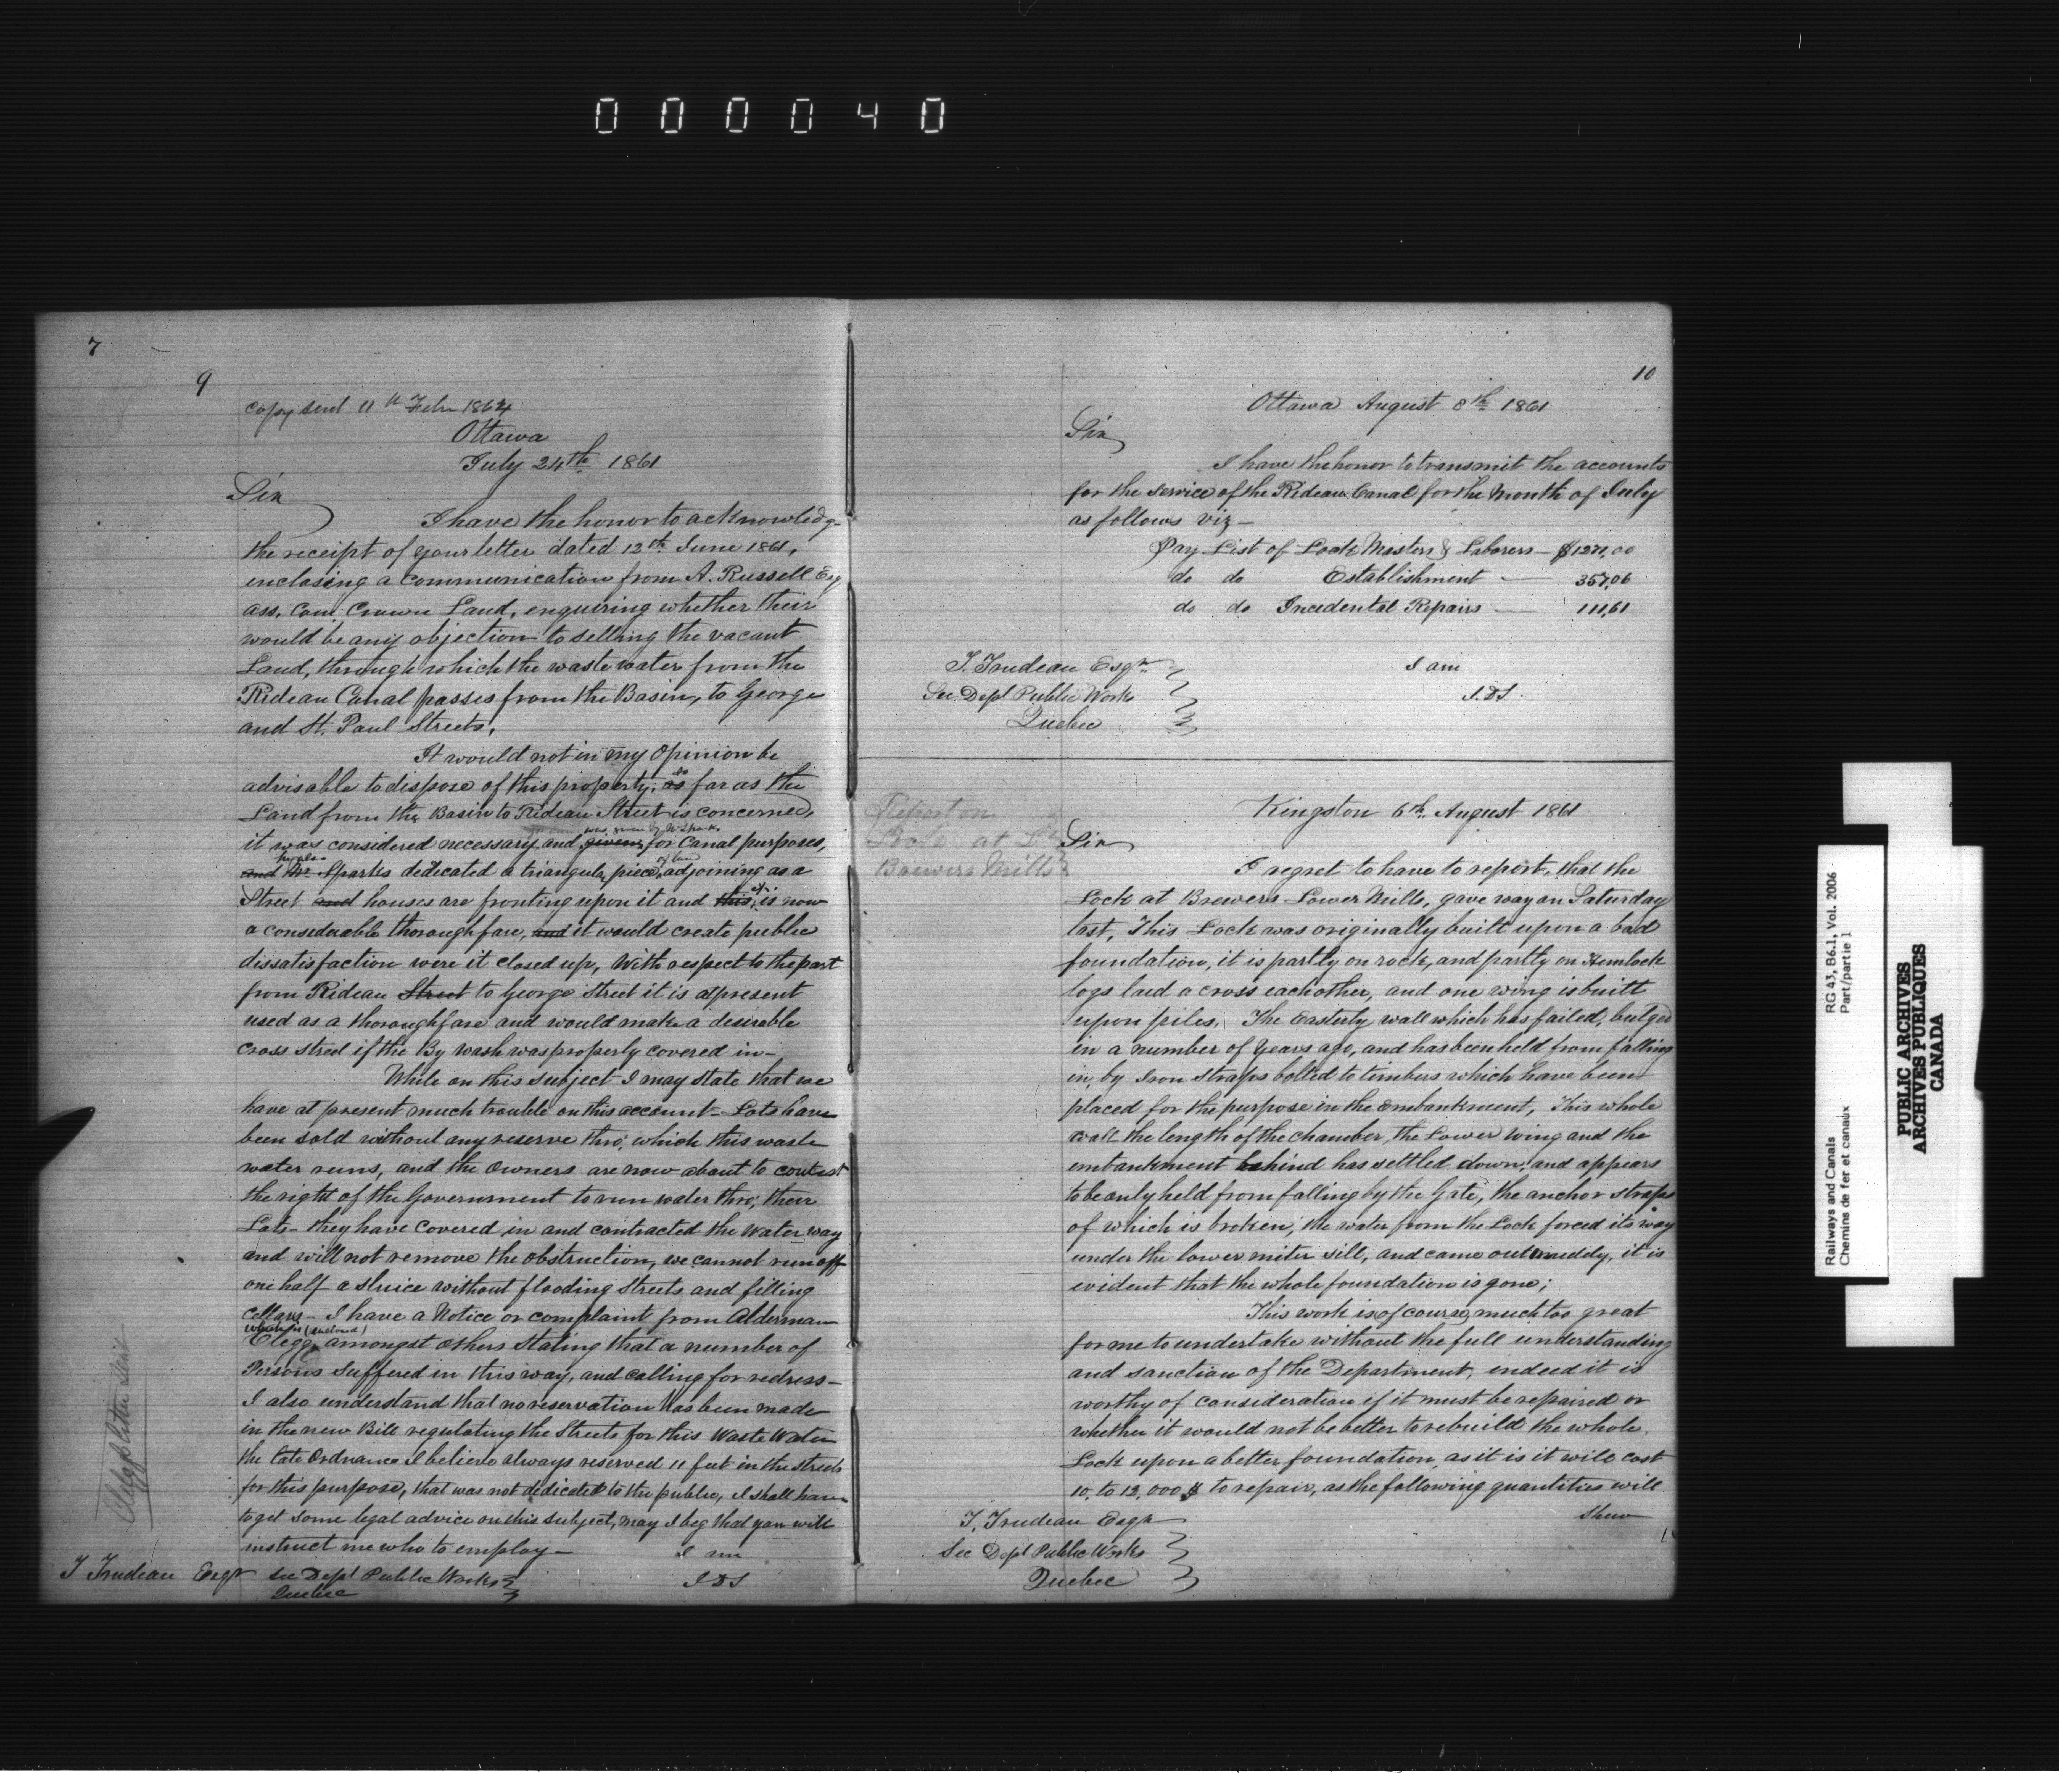 000040
7
9
Copy sent 11th Febr 1864
Ottawa
July 24th 1861
Sir
I have the honor to acknowledge
the receipt of your letter dated 12th June 1861,
enclosing a communication from A. Russell Esq
ass. Com. Crown Land, enquiring whether their
would be any objection to selling the vacant
Land, through which the waste water from the
Rideau Canal passes from the Basin, to George
and St. Paul Streets,
It would not in my Opinion be
advisable to dispose of this property, as so far as the
Land from the Basin to Rideau Street is concerned,
was given by N Sparks
it was considered necessary and given for Canal purposes,
he also of land
and Mr Sparks dedicated a triangular piece, adjoining as a
Street and houses are fronting upon it and this, it is now
a considerable thoroughfare, and it would create public
dissatisfaction were it closed up, With respect to the part
from Rideau Street to George Street it is at present
used as a thoroughfare and would make a desirable
cross street if the By Wash was properly covered in –
While on this subject I may state that we
have at present much trouble on this account – Lots have
been sold without any reserve thro; which this waste
water runs, and the Owners are now about to contest
the right of the Government to run water thro; their
Lots – they have Covered in and contracted the Water way
and will not remove the obstruction, we cannot run off
one half a sluice without flooding Streets and filling
Cellars – I have a Notice or complaint from Alderman
which is (enclosed)
Clegg, amongst others stating that a number of
Persons suffered in this way, and calling for redress –
I also understand that no reservation has been made
in the new Bill regulating the Streets for this Waste Water
the late Ordnance I believe always reserved 11 feet in the streets
for this purpose, that was not dedicated to the public, I shall have
to get some legal advice on this subject, may I beg that you will
instruct me who to employ –
I am
J.D.S
T Trudeau Esqr
Sec Dept Public Works
Quebec
Cleggs letter
10
Ottawa August 8th 1861
Sir
I have the honor to transmit the accounts
for the service of the Rideau Canal for the Month of July
as follows viz –
Pay List of Lock Masters & Laborers – $1271,00
do do Establishment — 357,06
do do Incidental Repairs — 111,61
T. Trudeau Esqr
I am
Sec. Dept Public Works
J.D.S.
Quebec
Report on
Lock at Lr
Brewers Mills
Kingston 6th August 1861
Sir
I regret to have to report, that the
Lock at Brewers Lower Mills, gave way on Saturday
last, This Lock was originally built upon a bad
foundation, it is partly on rock, and partly on Hemlock
logs laid a cross each other, and one wing is built
upon piles, The Easterly wall which has failed, bulged
in a number of years ago, and has been held from falling
in, by Iron Straps bolted to timbers which have been
placed for the purpose in the embankment, This whole
wall the length of the chamber, the Lower wing and the
embankment behind has settled down, and appears
to be only held from falling by the Gate, the anchor straps
of which is broken; the water from the Lock forced its way
under the lower miter sill, and came out muddy, it is
evident that the whole foundation is gone;
This work is of course, much too great
for me to undertake without the full understanding
and sanction of the Department, indeed it is
worthy of consideration if it must be repaired or
whether it would not be better to rebuild the whole
Lock upon a better foundation, as it is it will cost
10, to 12,000 $ to repair, as the following quantities will
shew
T, Trudeau Esqr
Sec Dept Public Works
Quebec
Railways and Canals
Chemins de fer et canaux
RG 43, B6.1, Vol. 2006
Part/partie 1
PUBLIC ARCHIVES
ARCHIVES PUBLIQUES
CANADA